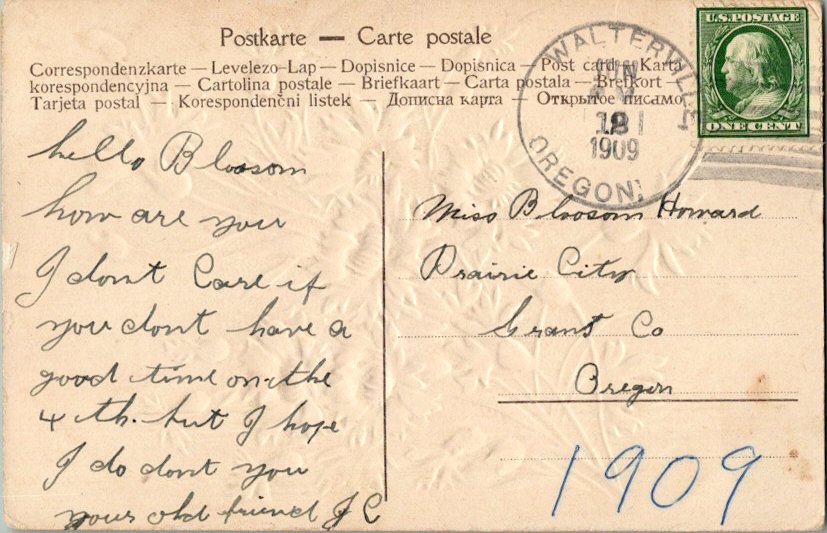 Postkarte — Carte postale
Correspondenzkarte — Levelezo-Lap — Dopisnice — Dopisnica — Post card — Karta
korespondencyjna — Cartolina postale — Briefkaart — Carta postala — Brefkort —
Tarjeta postal — Korespondenčni listek — Дописна карта — Открытое письмо
WALTERVILLE
JUN
1909
OREGON
U.S. POSTAGE
ONE CENT
hello Blossom
how are you
I dont Care if
you dont have a
good time on the
4 th. but I hope
I do dont you
your old friend J C
Miss Blossom Howard
Prairie City
Grant Co
Oregon
1909